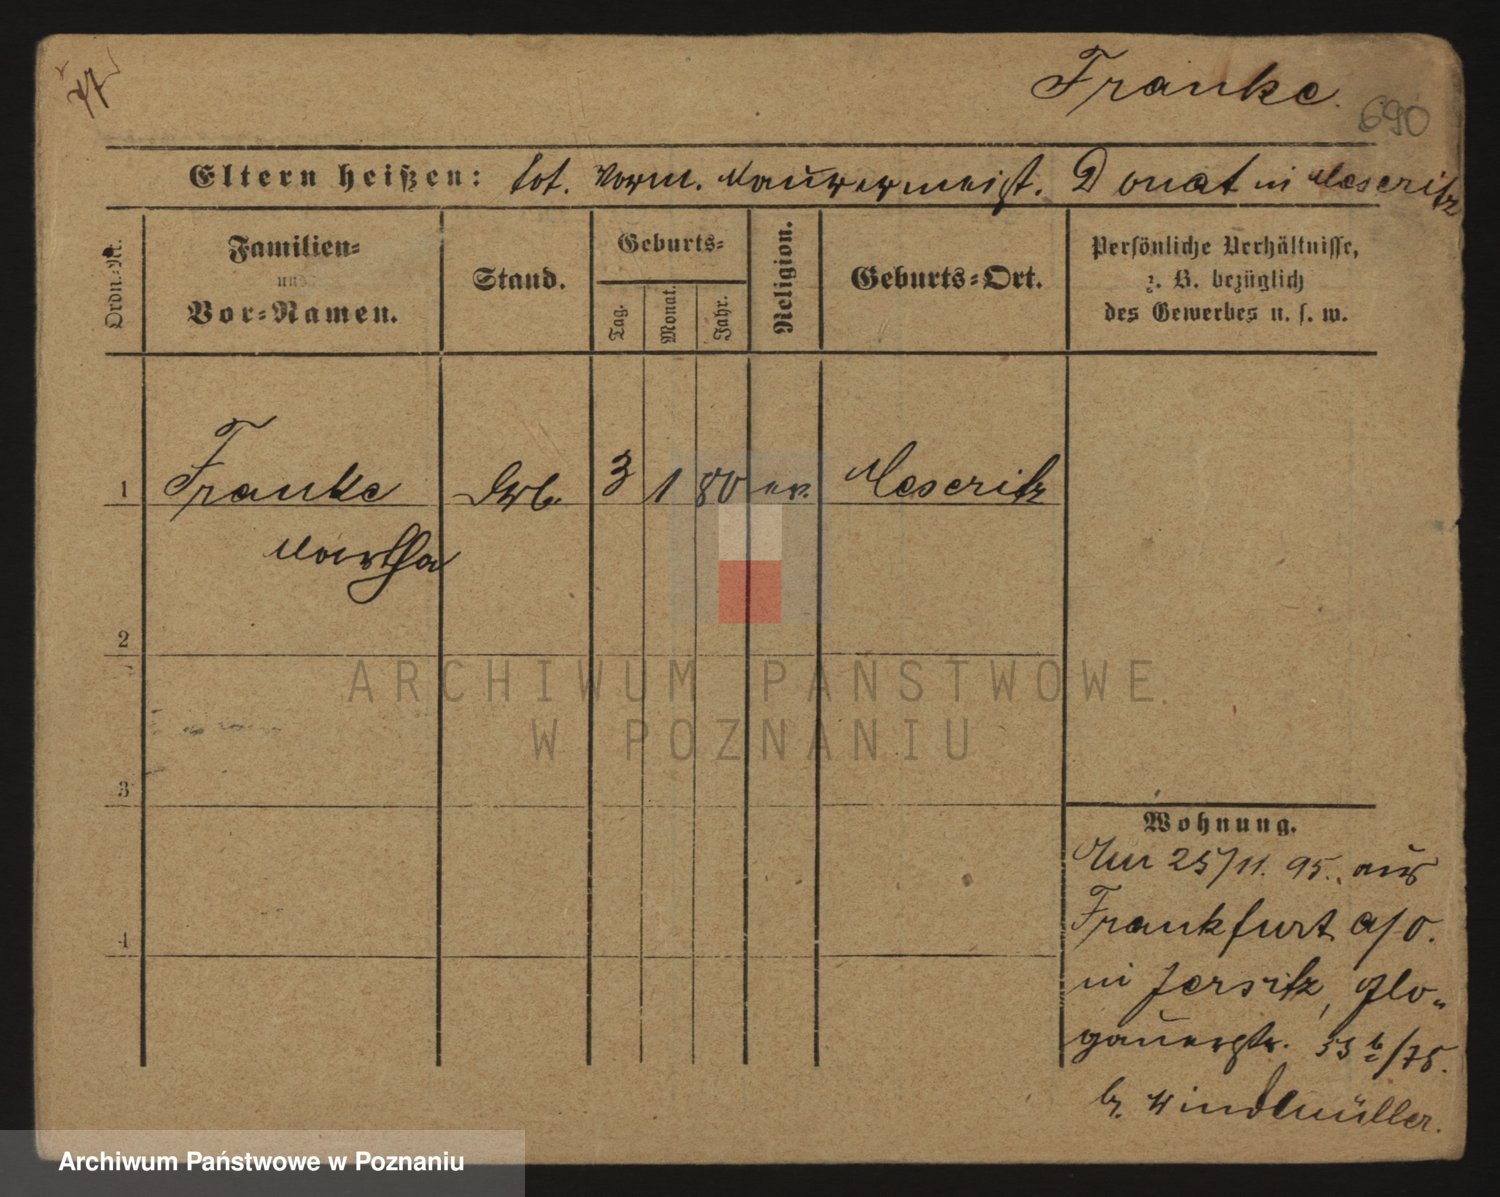 Franke.
690
Eltern heißen: tot. Vorm. Maurermeist. Donat in Meseritz
Ordn.-Nr.
Familien-
und
Vor-Namen.
Stand.
Geburts-
Tag.
Monat.
Jahr.
Religion.
Geburts-Ort.
Persönliche Verhältnisse,
z. B. bezüglich
des Gewerbes u. s. w.
1 Franke 3 1 80 ev. Meseritz
Martha
2
3
4
ARCHIWUM PAŃSTWOWE
W POZNANIU
Wohnung.
Am 25/11. 95. aus
Frankfurt a/O.
in Jersitz, Glo-
gauerstr. 53
b. Windmüller.
Archiwum Państwowe w Poznaniu